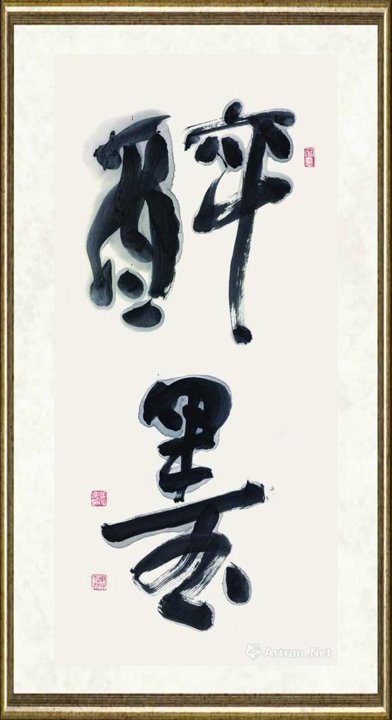 醉
墨
Artron.Net